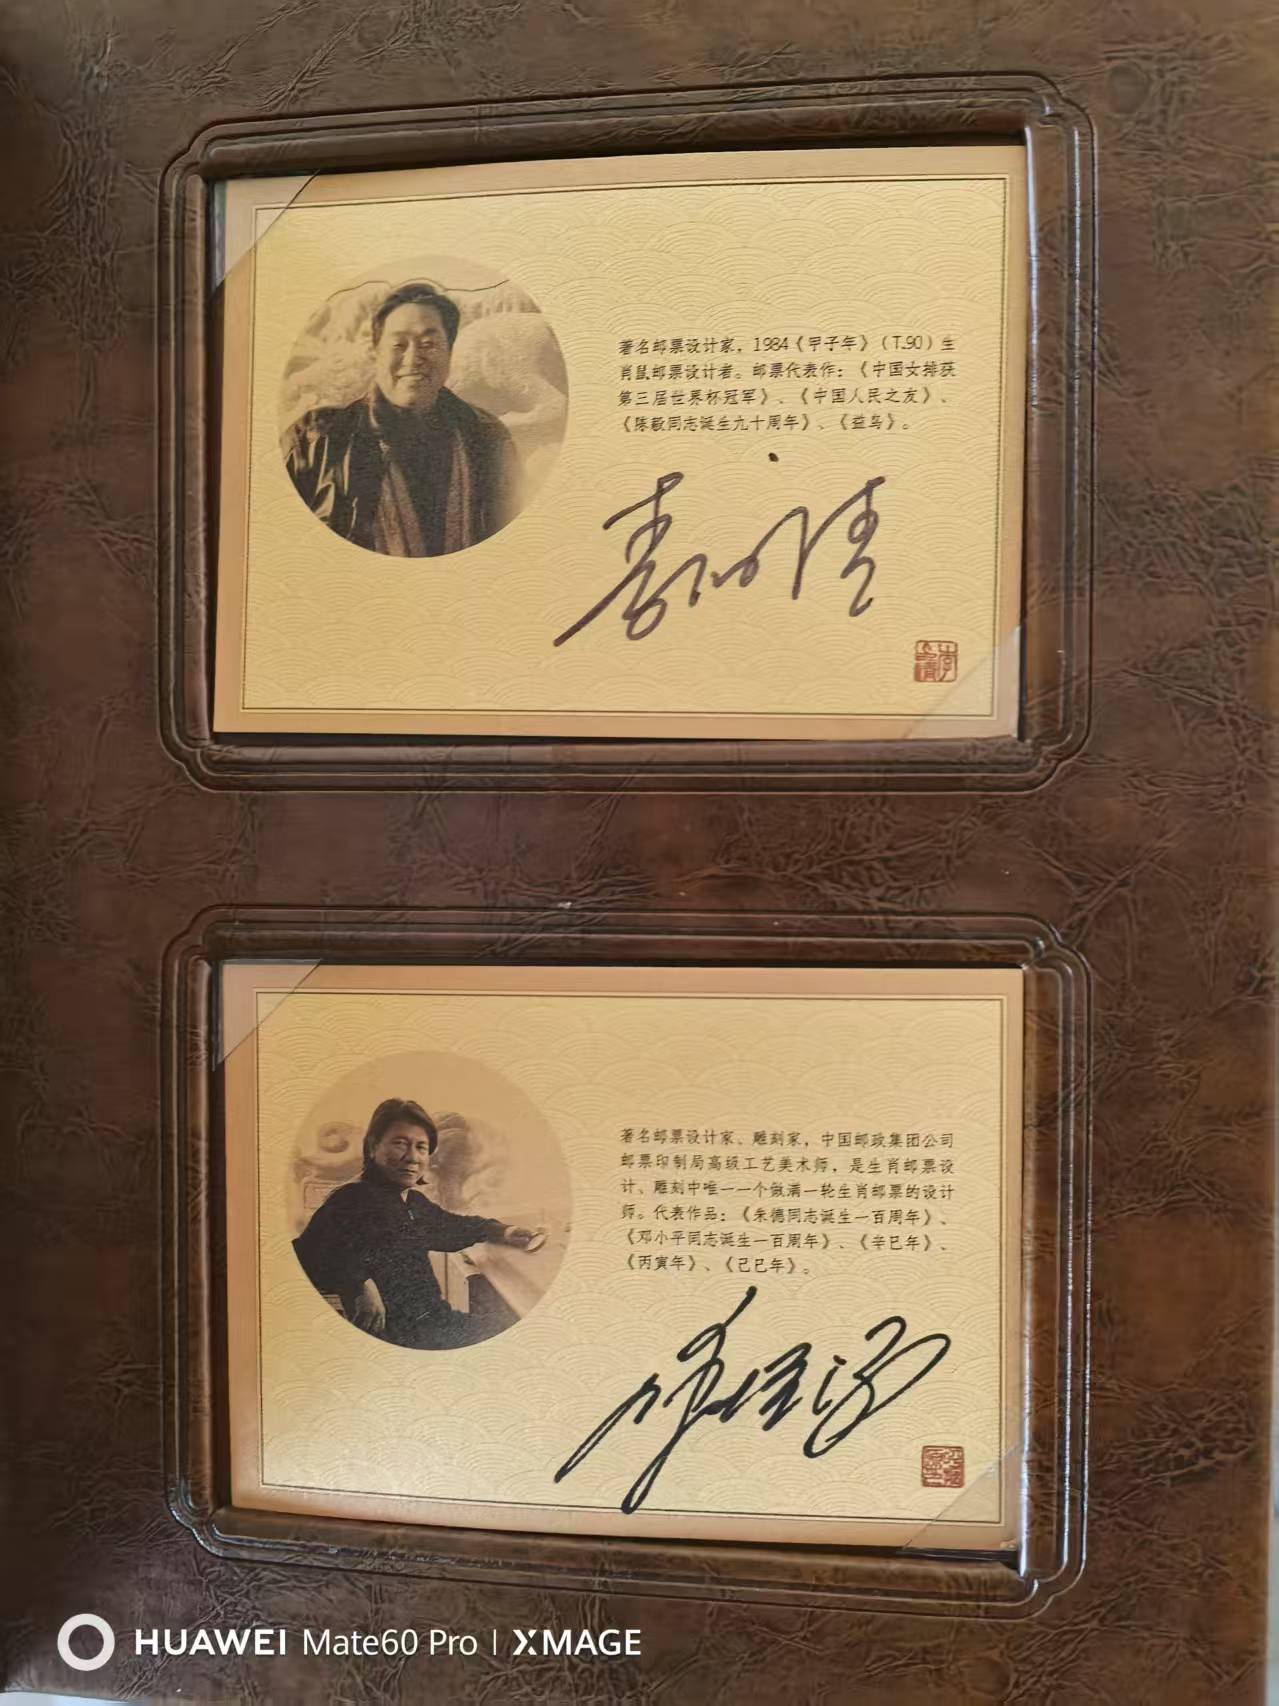 著名邮票设计家，1984《甲子年》（T.90）生
肖鼠邮票设计者。邮票代表作：《中国女排获
第三届世界杯冠军》、《中国人民之友》、
《陈毅同志诞生九十周年》、《益鸟》。
著名邮票设计家、雕刻家，中国邮政集团公司
邮票印制局高级工艺美术师，是生肖邮票设
计、雕刻中唯一一个做满一轮生肖邮票的设计
师。代表作品：《朱德同志诞生一百周年》、
《邓小平同志诞生一百周年》、《辛巳年》、
《丙寅年》、《己巳年》。
HUAWEI Mate60 Pro | XMAGE